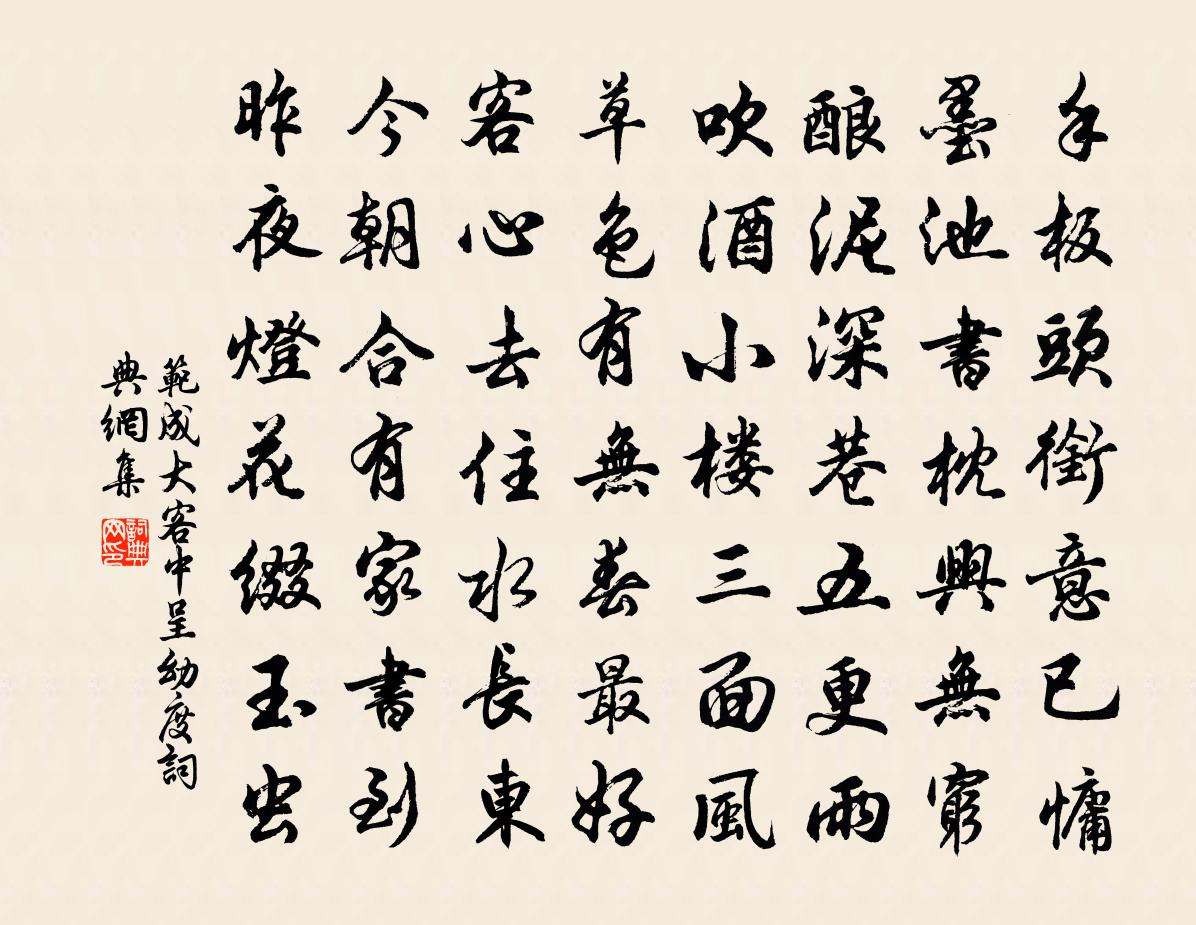 手板頭銜意已慵
墨池書枕興無窮
酿泥深巷五更雨
吹酒小楼三面風
草色有無春最好
客心去住水長東
今朝合有家書到
昨夜燈花綴玉虫
範成大客中呈幼度詞
典網集
詞典
网印